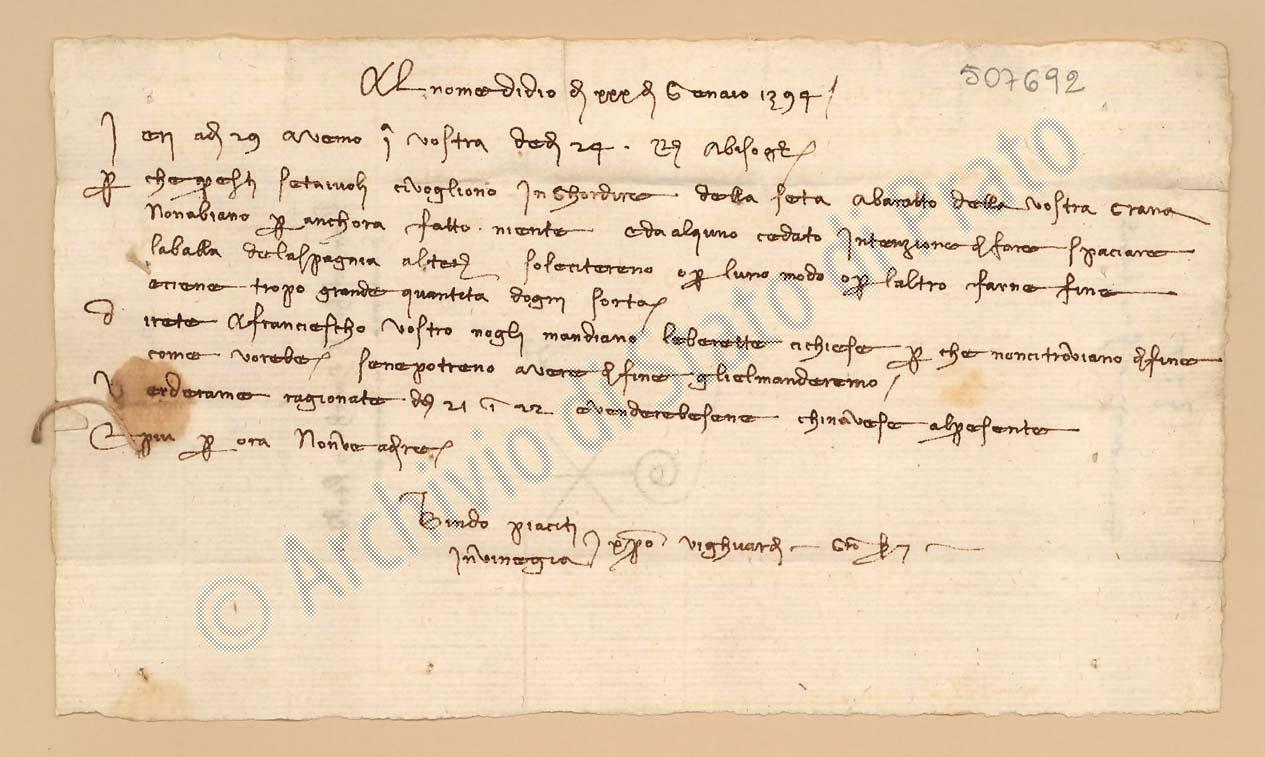 Al nome di dio dì xxx di Gennaio 1394
507692
Ieri adì 29 avemo 1ª vostra de dì 24 . Rispondo a bisogni
Per che questi setaiuoli ci vogliono inghordire della seta a baratto della vostra grana
non abiano per anchora fatto niente e da alquno ce dato intenzione di fare spaciare
la balla de la spagnia al tedi soleciteremo o per luno modo o per laltro farne fine
e ciene tropo grande quantita dogni sorta
Direte a franciescho vostro nogli mandiano le berette ci chiese per che non ci troviano di fine
come vorebe se ne potreno avere di fine gliel manderemo
Verderame ragionate 21 in 22 e venderebesene chi navese al presente
E piu per ora non ve a dire
Bindo piaciti
in vinegia
© Archivio di Stato di Prato